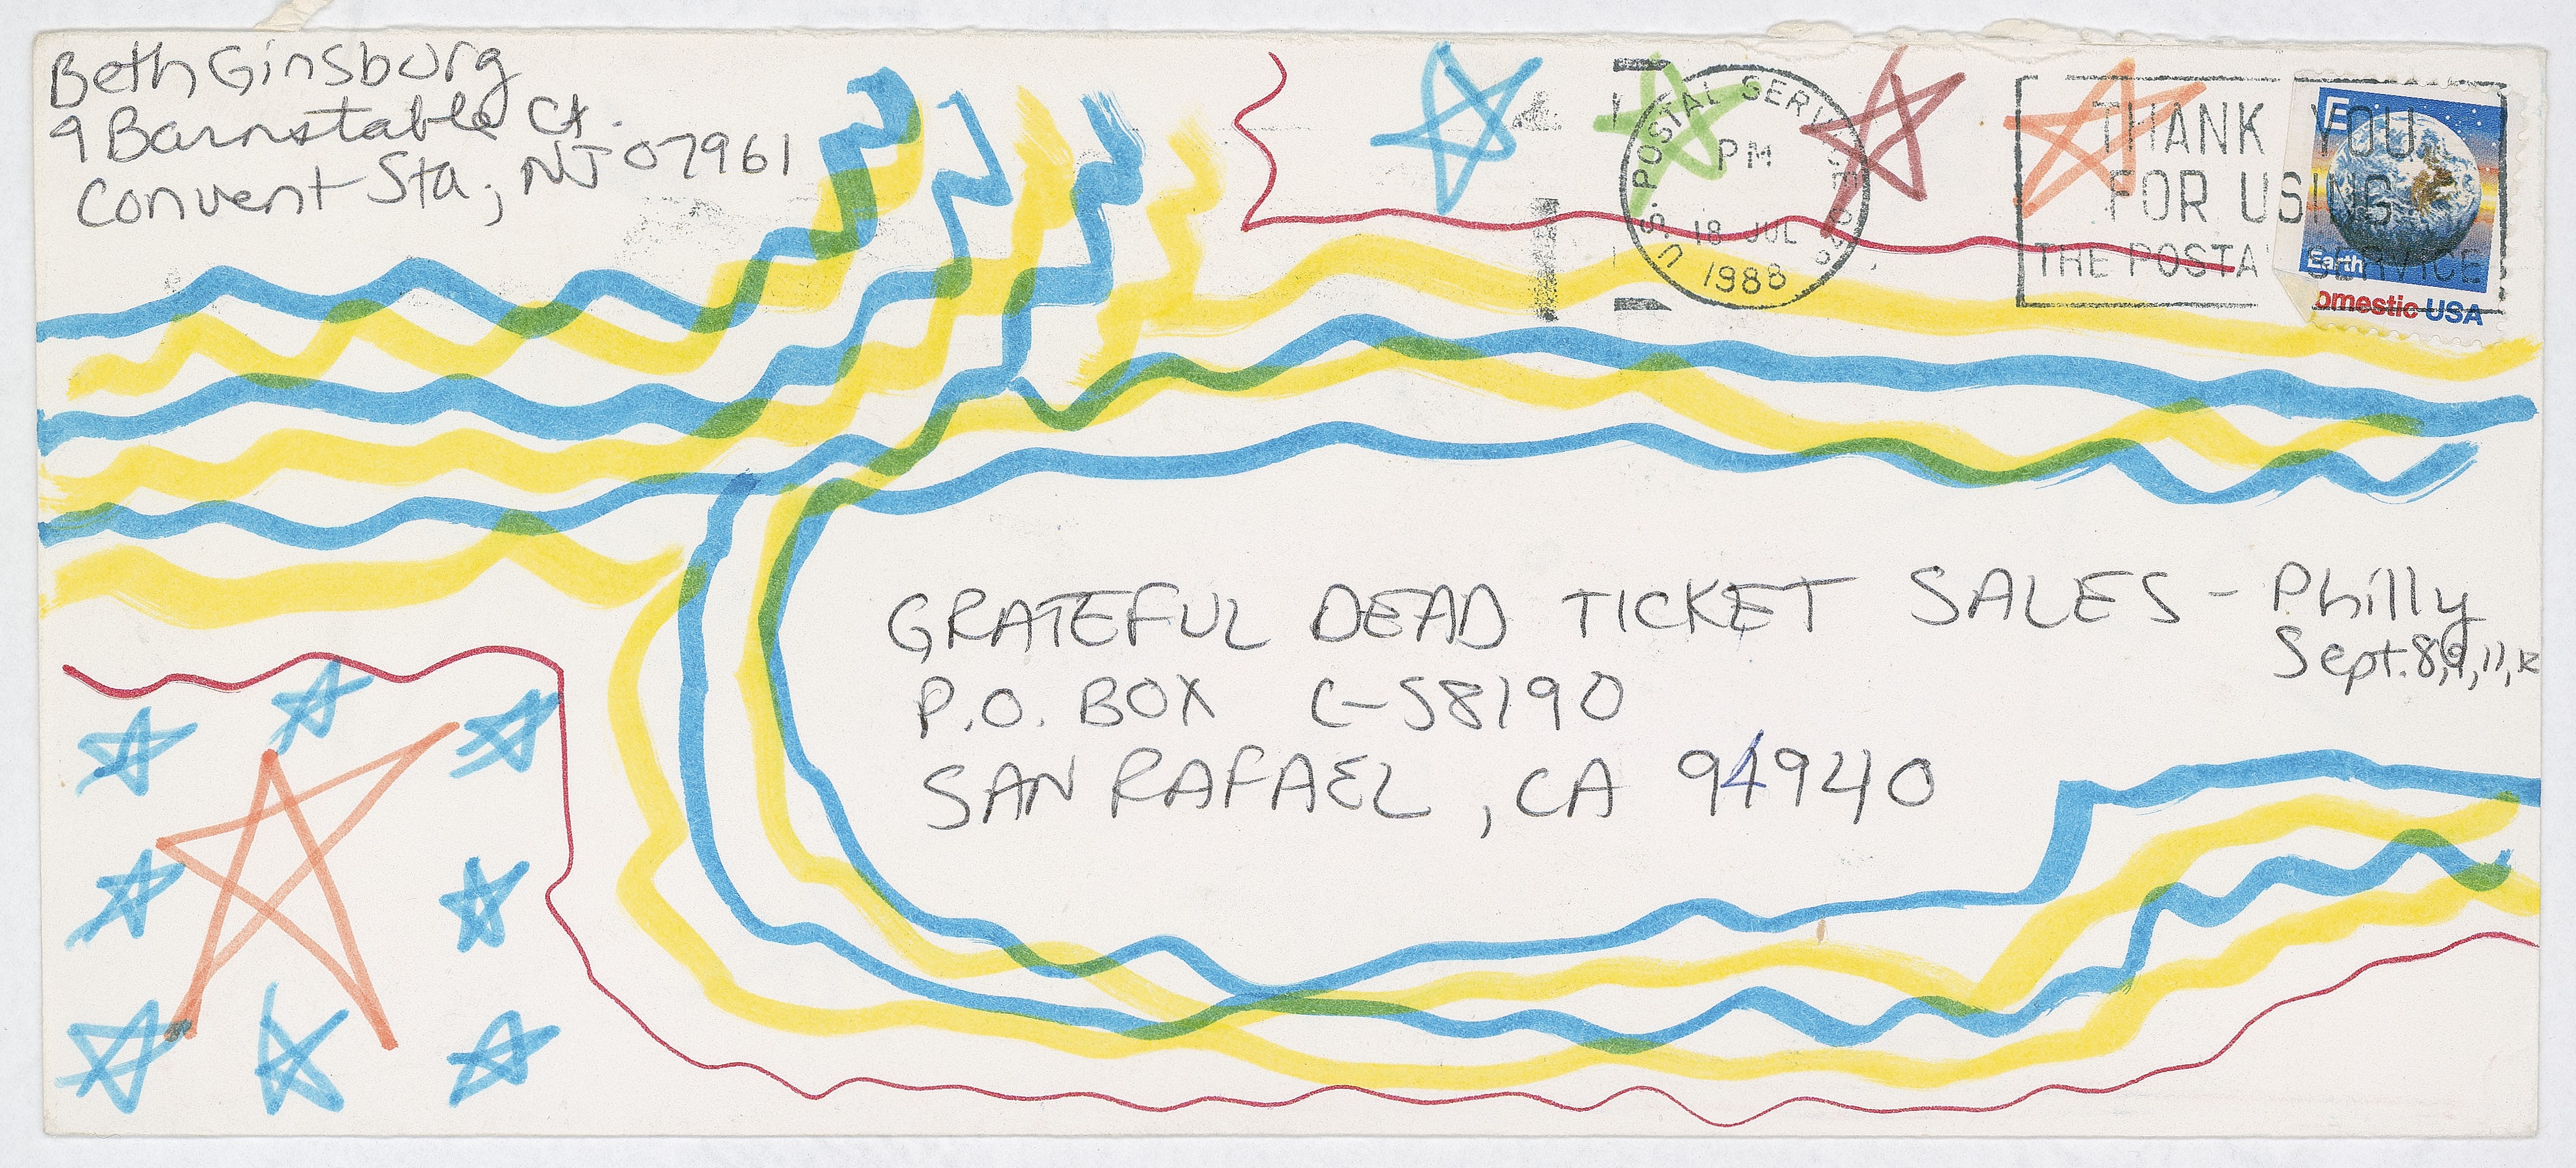 Beth Ginsburg
9 Barnstable Ct.
Convent Sta, NJ 07961
U.S. POSTAL SERVICE
PM
18 JUL
1988
THANK YOU
FOR USING
THE POSTA SERVICE
E
Earth
omestic USA
GRATEFUL DEAD TICKET SALES - Philly
Sept. 8, 9, 11, 12
P.O. BOX C-S8190
SAN RAFAEL, CA 94940